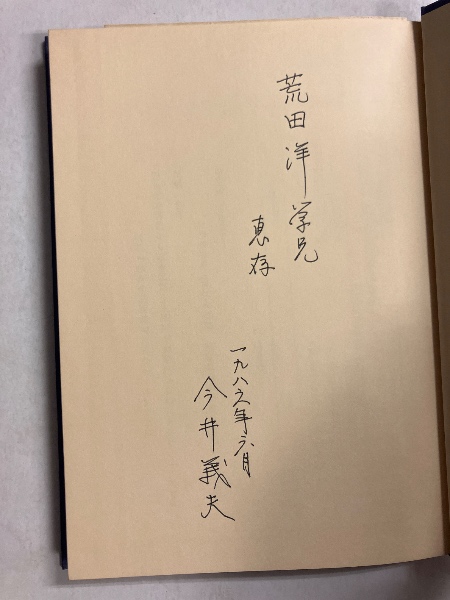 荒田洋学兄
恵存
一九八六年六月
今井義夫